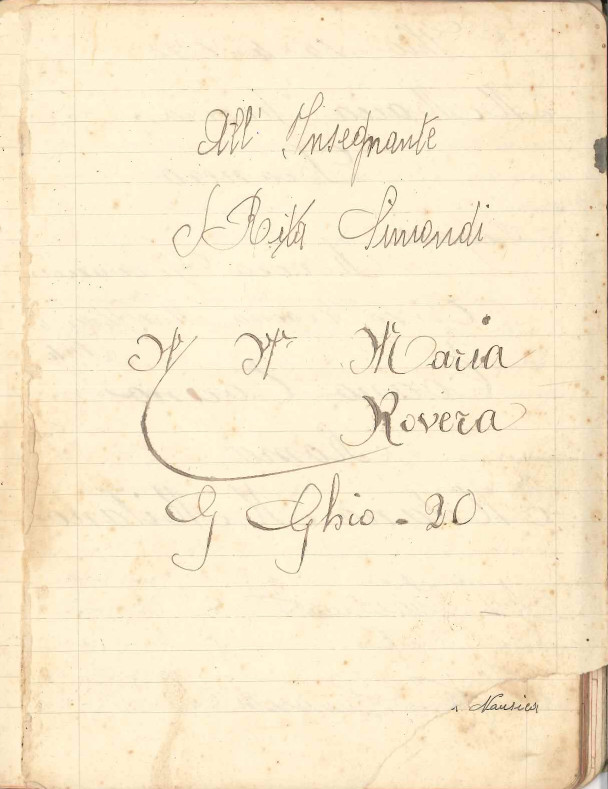 All' Insegnante
S Rita Simondi
N N Maria
Rovera
G Ghio - 20
Nausica